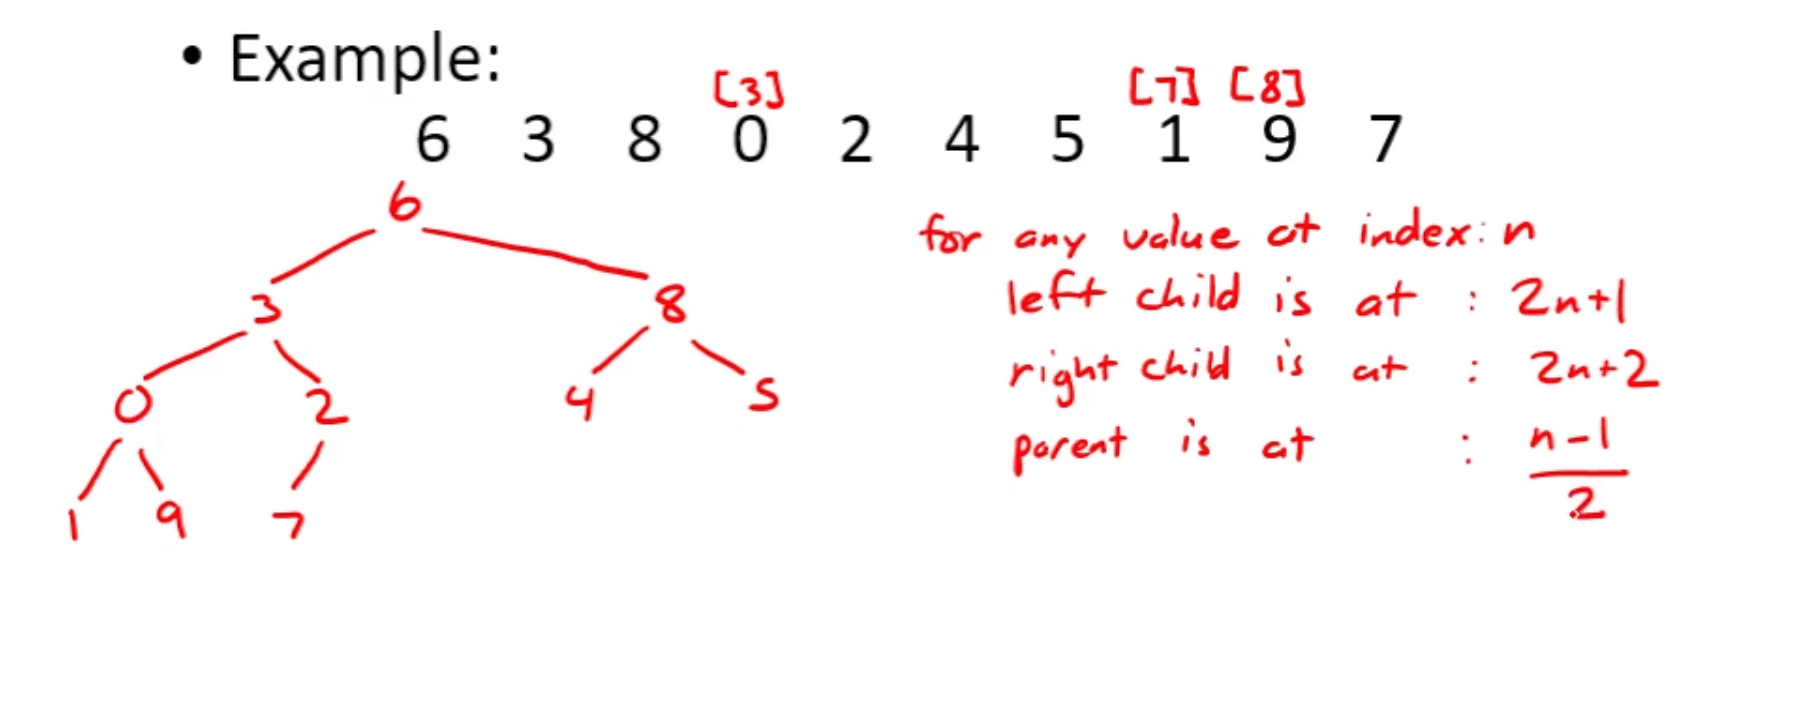 • Example:
[3] [7] [8]
6 3 8 0 2 4 5 1 9 7
6
for any value at index: n
3 8
left child is at : 2n+1
right child is at : 2n+2
0 2 4 5
parent is at : n-1
2
1 9 7